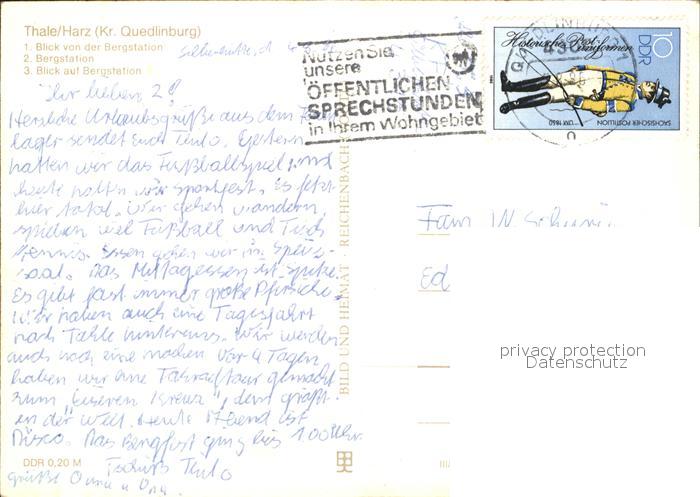 Thale/Harz (Kr. Quedlinburg)
1. Blick von der Bergstation
2. Bergstation
3. Blick auf Bergstation
Ihr lieben 2!
Herzliche Urlaubsgrüße aus dem
lager sendet Euch Thilo. Gestern
hatten wir das Fußballspiel und
heute hatten wir Sportfest. Es fetzt
hier total. Wir gehen wandern,
spielen viel Fußball und Tisch
tennis. Essen gehen wir in Speise-
saal. Das Mittagessen ist Spitze.
Es gibt fast immer große Pfirsiche.
Wir haben auch eine Tagesfahrt
nach Thale hinter uns. Wir werden
auch noch eine machen. Vor 4 Tagen
haben wir eine Fahrradtour gemacht
zum "Eisernen Kreuz", dem größt-
en der Welt. Heute Abend ist
Disco. Das Bergfest ging bis 1 00 Uhr.
Tschüß Thilo
Grüße Oma u Opa.
DDR 0,20 M
BILD UND HEIMAT · REICHENBACH
Nutzen Sie
unsere
ÖFFENTLICHEN
SPRECHSTUNDEN
in Ihrem Wohngebiet
Historische Postuniformen
10
DDR
SÄCHSISCHER POSTILLION
UM 1850
Fam. W.
Ed
privacy protection
Datenschutz